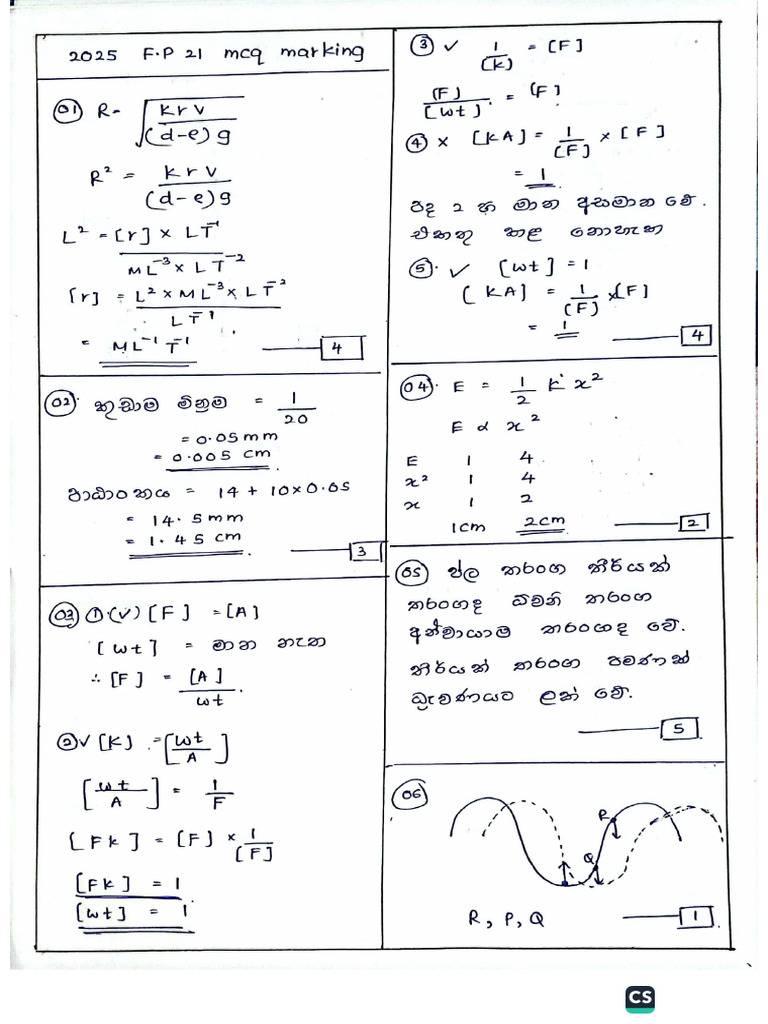 2025 F.P 21 mcq marking
01 R = √(krv / (d-e)g)
R² = krv / (d-e)g
L² = [r] × LT⁻¹ / ML⁻³ × LT⁻²
[r] = L² × ML⁻³ × LT⁻² / LT⁻¹
= ML⁻¹T⁻¹ — 4
02. කුඩාම මිනුම = 1/20
= 0.05 mm
= 0.005 cm
පාඨාංකය = 14 + 10×0.05
= 14.5 mm
= 1.45 cm — 3
03 ①.(✓) [F] = [A]
[wt] = මාන නැත
∴ [F] = [A]/wt
②✓ [K] = [wt/A]
[wt/A] = 1/F
[Fk] = [F] × 1/[F]
[Fk] = 1
[wt] = 1
③ ✓ 1/[k] = [F]
[F]/[wt] = [F]
④ × [KA] = 1/[F] × [F]
= 1
පද 2 හි මාන අසමාන වේ.
එකතු කළ නොහැක
⑤. ✓ [wt] = 1
[KA] = 1/[F] × [F]
= 1 — 4
04. E = 1/2 k x²
E α x²
E 1 4
x² 1 4
x 1 2
1cm 2cm — 2
05 ජල තරංග තීර්යක්
තරංගද ධ්වනි තරංග
අන්වායාම තරංගද වේ.
තීර්යක් තරංග පමණක්
ධ්‍රැවණයට ලක් වේ.
5
06
R
Q
R, P, Q — 1
CS